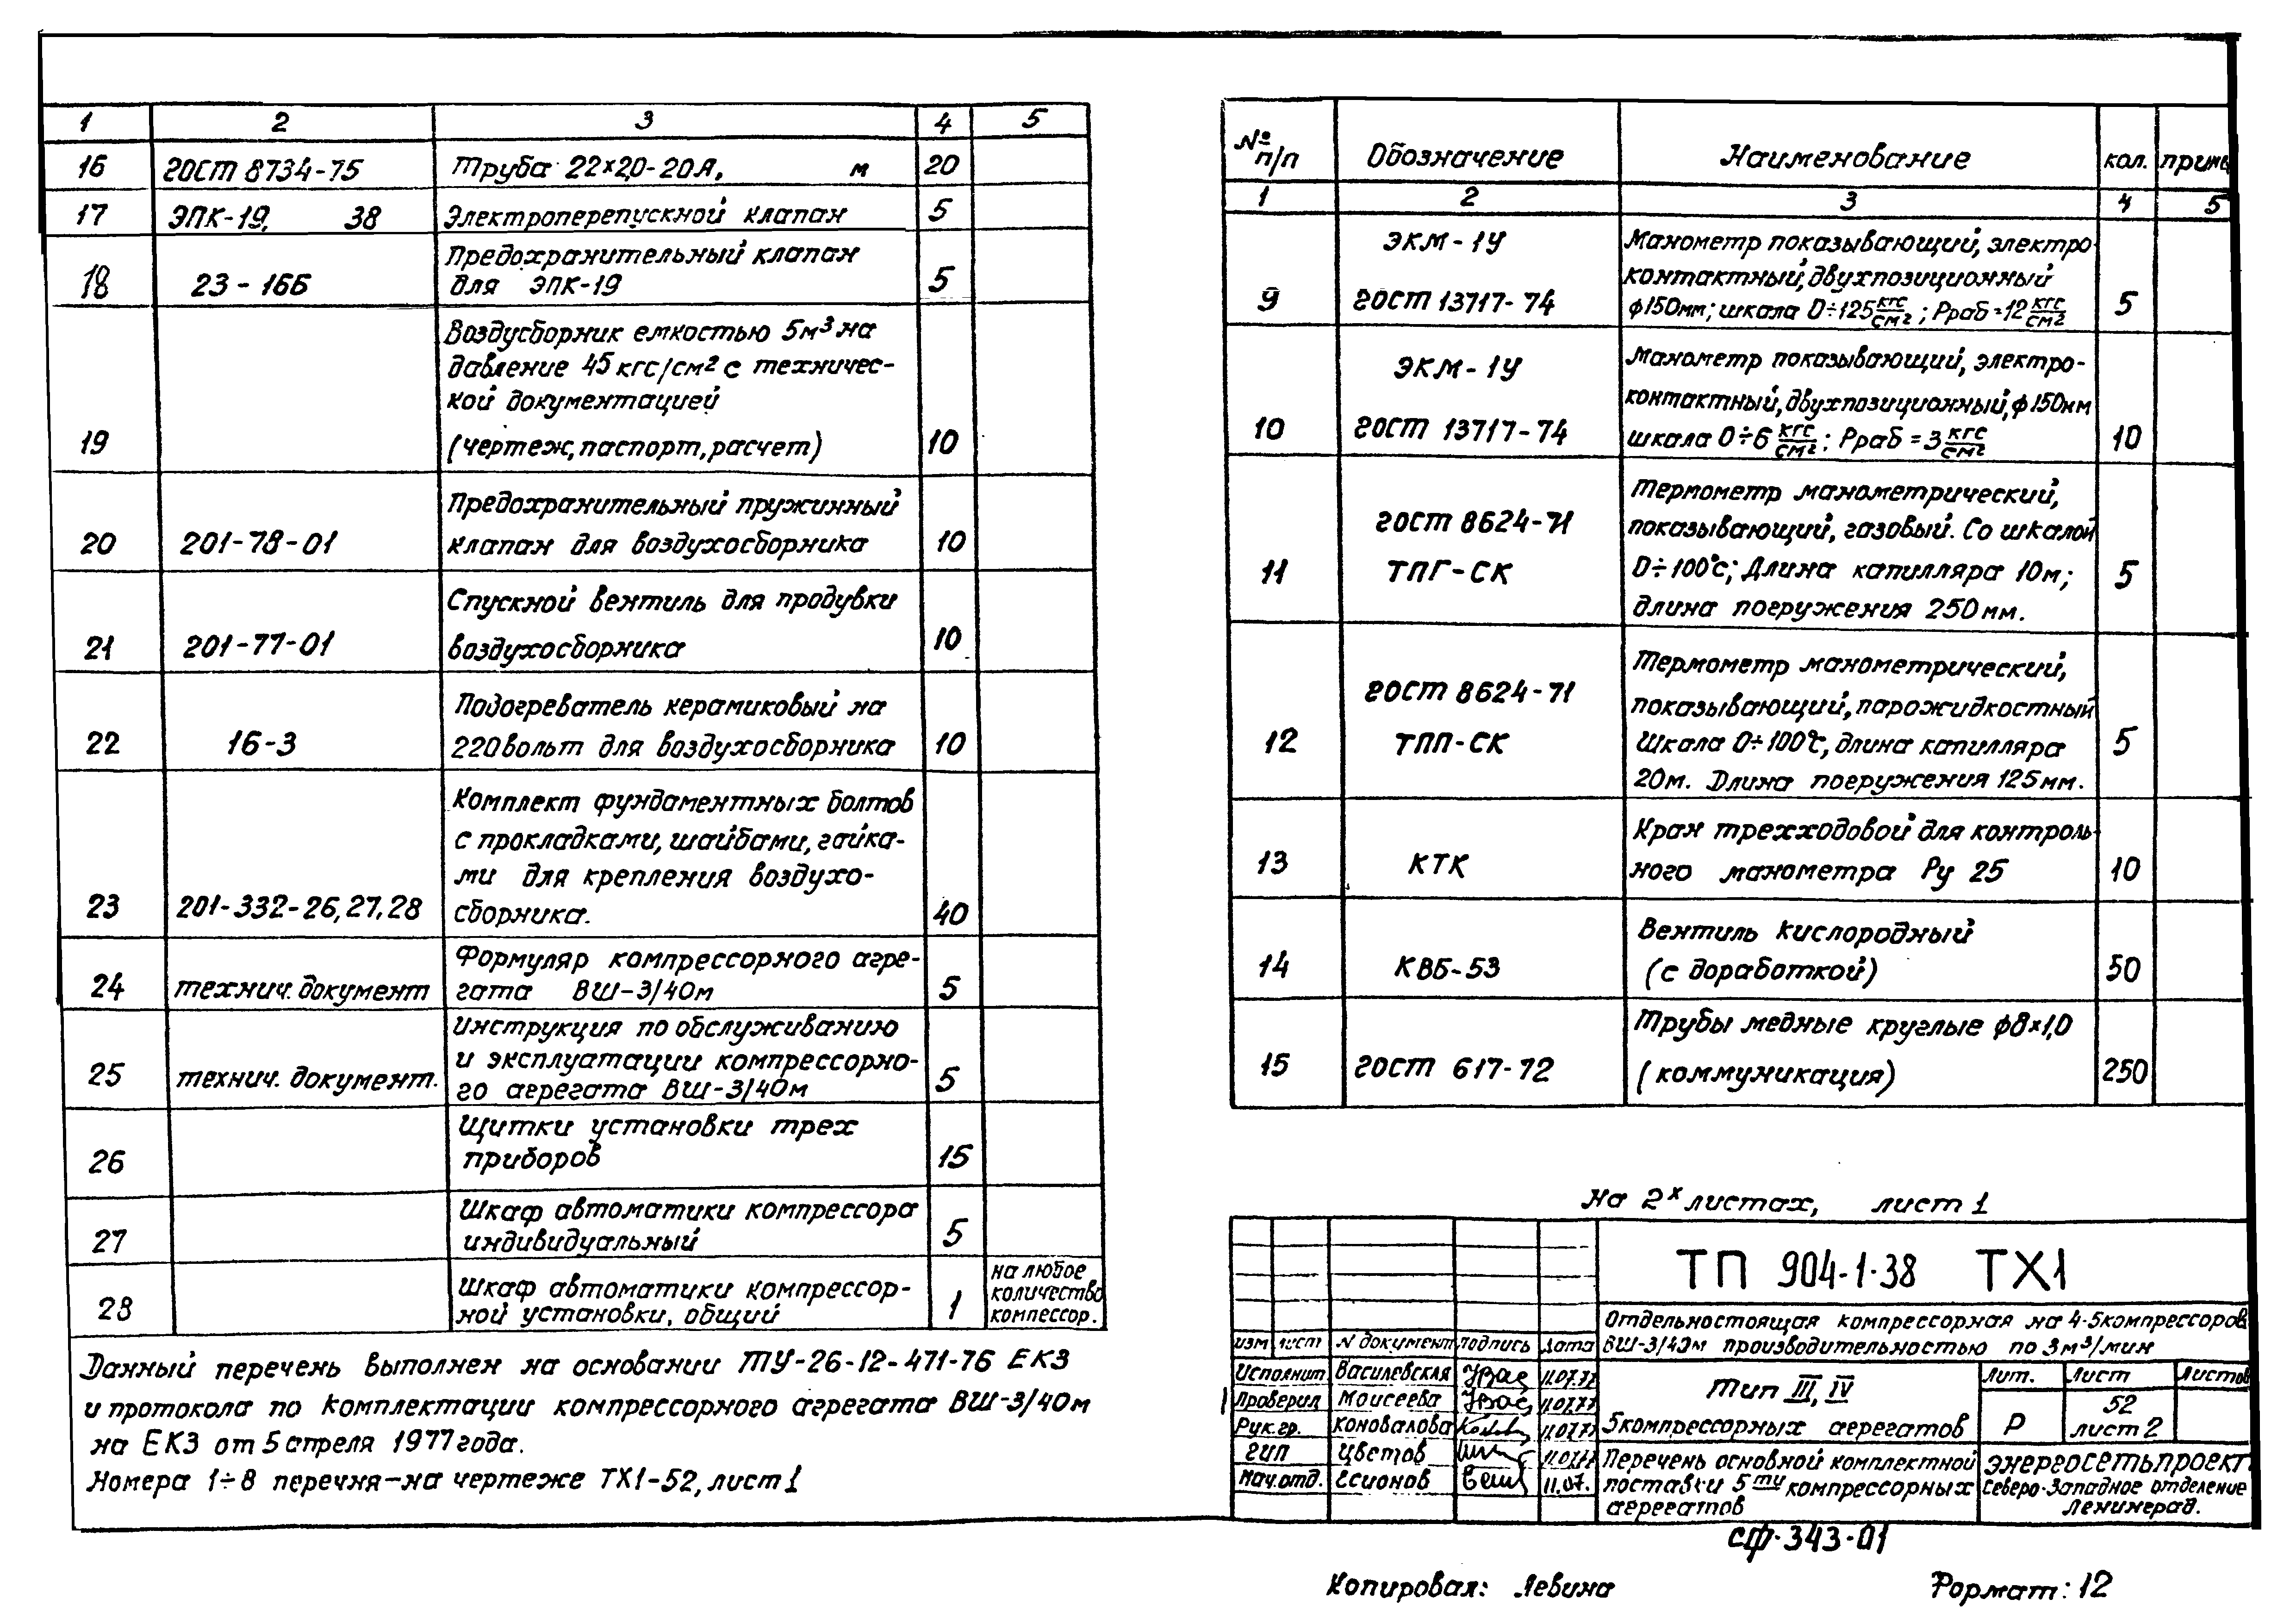 1 2 3 4 5
16 ГОСТ 8734-75 Труба 22×2,0-20А, м 20
17 ЭПК-19, 38 Электроперепускной клапан 5
Предохранительный клапан
18 23-16Б для ЭПК-19 5
Воздусборник емкостью 5м³ на
давление 45 кгс/см² с техничес-
кой документацией
19 (чертеж, паспорт, расчет) 10
Предохранительный пружинный
20 201-78-01 клапан для воздухосборника 10
Спускной вентиль для продувки
21 201-77-01 воздухосборника 10
Подогреватель керамиковый на
22 16-3 220 вольт для воздухосборника 10
Комплект фундаментных болтов
с прокладками, шайбами, гайка-
ми для крепления воздухо-
23 201-332-26,27,28 сборника. 40
Формуляр компрессорного агре-
24 технич. документ гата ВШ-3/40м 5
Инструкция по обслуживанию
и эксплуатации компрессорно-
25 технич. документ. го агрегата ВШ-3/40м 5
Щитки установки трех
26 приборов 15
Шкаф автоматики компрессора
27 индивидуальный 5
Шкаф автоматики компрессор-
28 ной установки, общий 1
на любое
количество
компессор.
Данный перечень выполнен на основании ТУ-26-12-471-76 ЕКЗ
и протокола по комплектации компрессорного агрегата ВШ-3/40м
на ЕКЗ от 5 апреля 1977 года.
Номера 1÷8 перечня – на чертеже ТХ1-52, лист 1
№ п/п Обозначение Наименование кол. прим
1 2 3 4 5
ЭКМ-1У Манометр показывающий, электро-
контактный, двухпозиционный
9 ГОСТ 13717-74 ф150мм; шкала 0÷125 кгс/см²; Рраб=12 кгс/см² 5
ЭКМ-1У Манометр показывающий, электро-
контактный, двухпозиционный, ф150мм
10 ГОСТ 13717-74 шкала 0÷6 кгс/см²; Рраб=3 кгс/см² 10
Термометр манометрический,
ГОСТ 8624-71 показывающий, газовый. Со шкалой
11 ТПГ-СК 0÷100°с; Длина капилляра 10м; 5
длина погружения 250мм.
Термометр манометрический,
ГОСТ 8624-71 показывающий, парожидкостный
12 ТПП-СК Шкала 0÷100°с, длина капилляра 5
20м. Длина погружения 125мм.
Кран трехходовой для контроль-
13 КТК ного манометра Ру 25 10
Вентиль кислородный
14 КВБ-53 (с доработкой) 50
Трубы медные круглые ф8×1,0
15 ГОСТ 617-72 (коммуникация) 250
На 2х листах, лист 1
ТП 904-1-38 ТХ1
Отдельностоящая компрессорная на 4-5 компрессоров
ВШ-3/40м производительностью по 3м³/мин
изм лист N документ подпись дата
Исполнит Василевская 11.07.77
Проверил Моисеева 11.07.77
Рук.гр. Коновалова 11.07.77
ГИП Цветов 11.07.77
Нач.отд. Есионов 11.07.
Тип III, IV
5 компрессорных агрегатов
Лит. Лист Листов
Р 52
лист 2
Перечень основной комплектной
поставки 5ти компрессорных
агрегатов
Энергосетьпроект
Северо-Западное отделение
Ленинград.
сф-343-01
Копировал: Левина Формат: 12